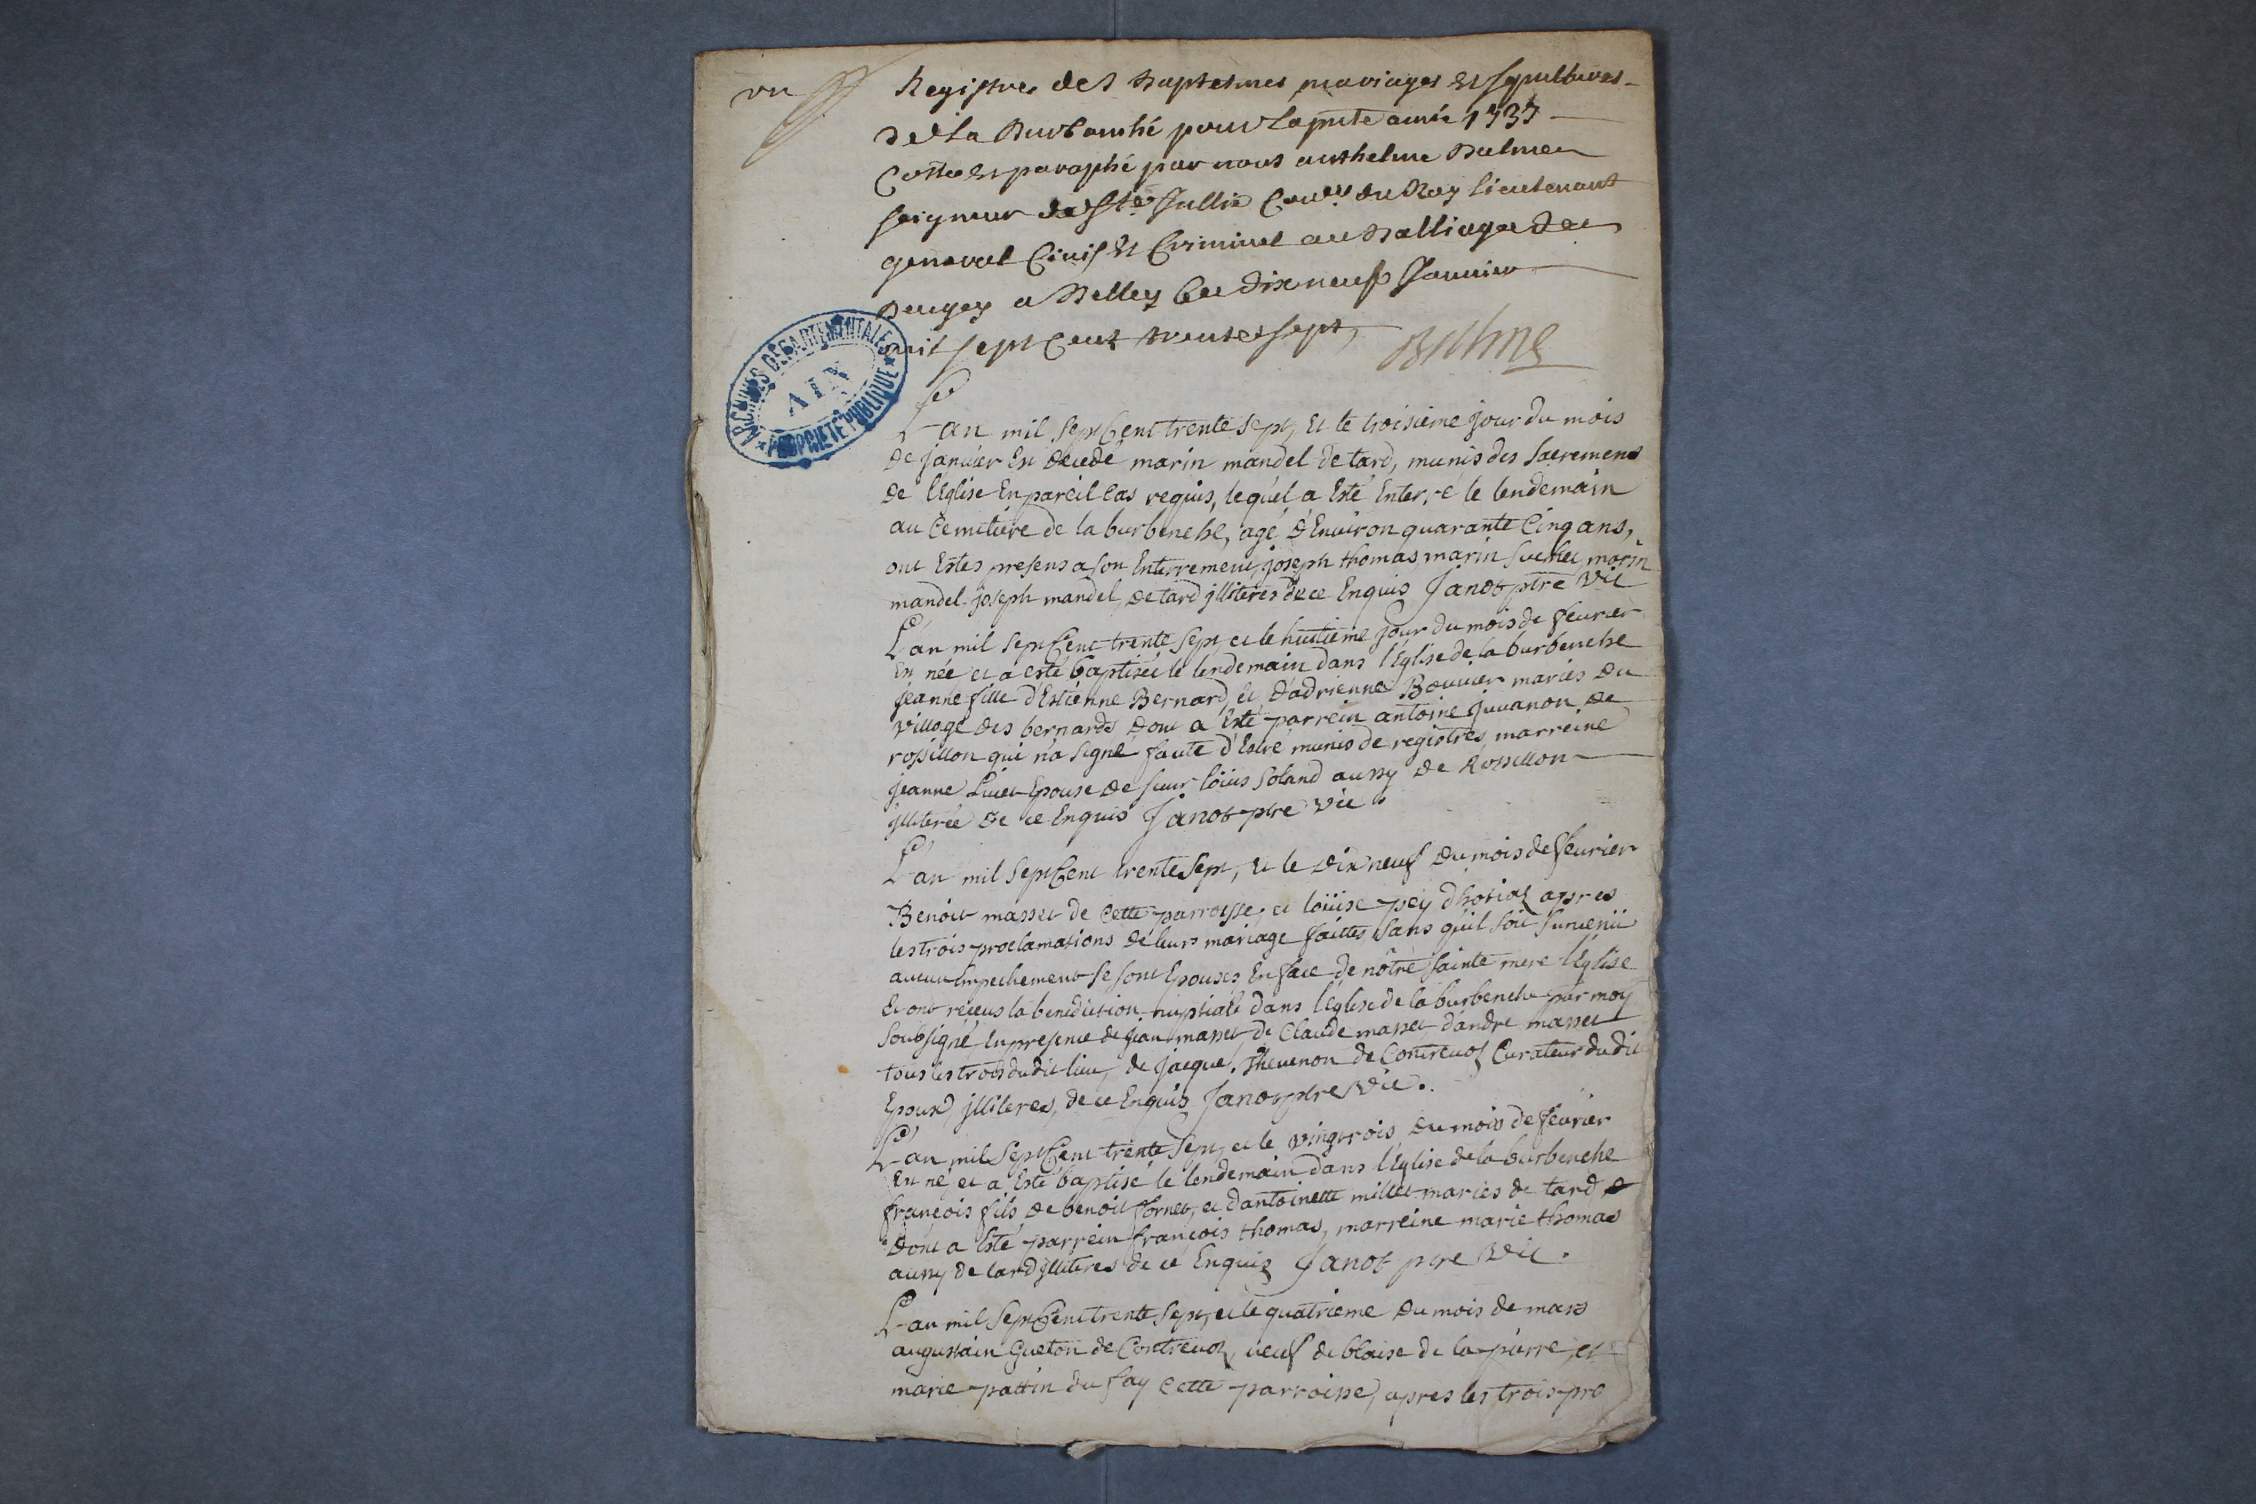 vu
Registre des baptesmes mariages et sepultures
de La Burbanche pour la pnte année 1737
Cotté et paraphé par nous anthelme Balme
seigneur de Ste Jullie Coner. du Roy lieutenant
general Civil et Criminel au Balliage de
Bugey a Belley ce dix neuf Janvier
mil sept cent trente sept,
Balme
ARCHIVES DEPARTEMENTALES
AIN
PROPRIETE PUBLIQUE
L'an mil sept Cent trente sept, et le troisieme jour du mois
de janvier est decedé marin mandel de tard, munis des sacremens
de l'Eglise En pareil cas requis, lequel a Esté Enterré le lendemain
au cemitiere de la burbenche, agé d'Environ quarante cinq ans,
ont Estes presens a son Enterrement joseph thomas marin suchet marin
mandel joseph mandel, de tard jlliteres de ce Enquis Janot ptre vic
L'an mil sept Cent trente sept et le huitieme jour du mois de fevrier
Est née et a esté baptisée le lendemain dans l'Eglise de la burbenche
jeanne fille d'Estienne Bernard, et d'adrienne Bouvier mariés du
village des bernards dont a Esté parrein antoine juvanon de
rossillon qui n'a signé faute d'Estre munis de registres, marreine
jeanne Livet Epouse de sieur loüis Soland aussy de Rossillon
jlliterée de ce Enquis Janot ptre vic.
L'an mil sept Cent trente sept, et le dix neuf du mois de fevrier
Benoit masset de cette parroisse, et loüise pey d'hostiaz apres
les trois proclamations de leurs mariage faittes sans qu'il soit survenü
aucun Empechement se sont Epousés En face de nôtre sainte mere l'Eglise
Et ont reçeus la benediction nuptiale dans l'Eglise de la burbenche par moy
soubsigné En presence de jean masset de Claude masset d'andré masset
tous les trois dudit lieu, de jacque Thevenon de Contrevoz Curateur dudit
Epoux jlliteres, de ce Enquis Janot ptre vic.
L'an mil sept Cent trente sept, et le vingt trois du mois de fevrier
Est né et a Esté baptisé le lendemain dans l'Eglise de la burbenche
françois fils de benoit Cornet, et d'antoinette millet mariés de tard
dont a Esté parrein françois thomas, marreine marie thomas
aussy de tard jlliteres de ce Enquis Janot ptre vic.
L'an mil sept Cent trente sept, et le quatrieme du mois de mars
augustain Gueton de Contrevoz, veuf de blaise de la pierre, et
marie pattin du fay cette parroisse, apres les trois pro